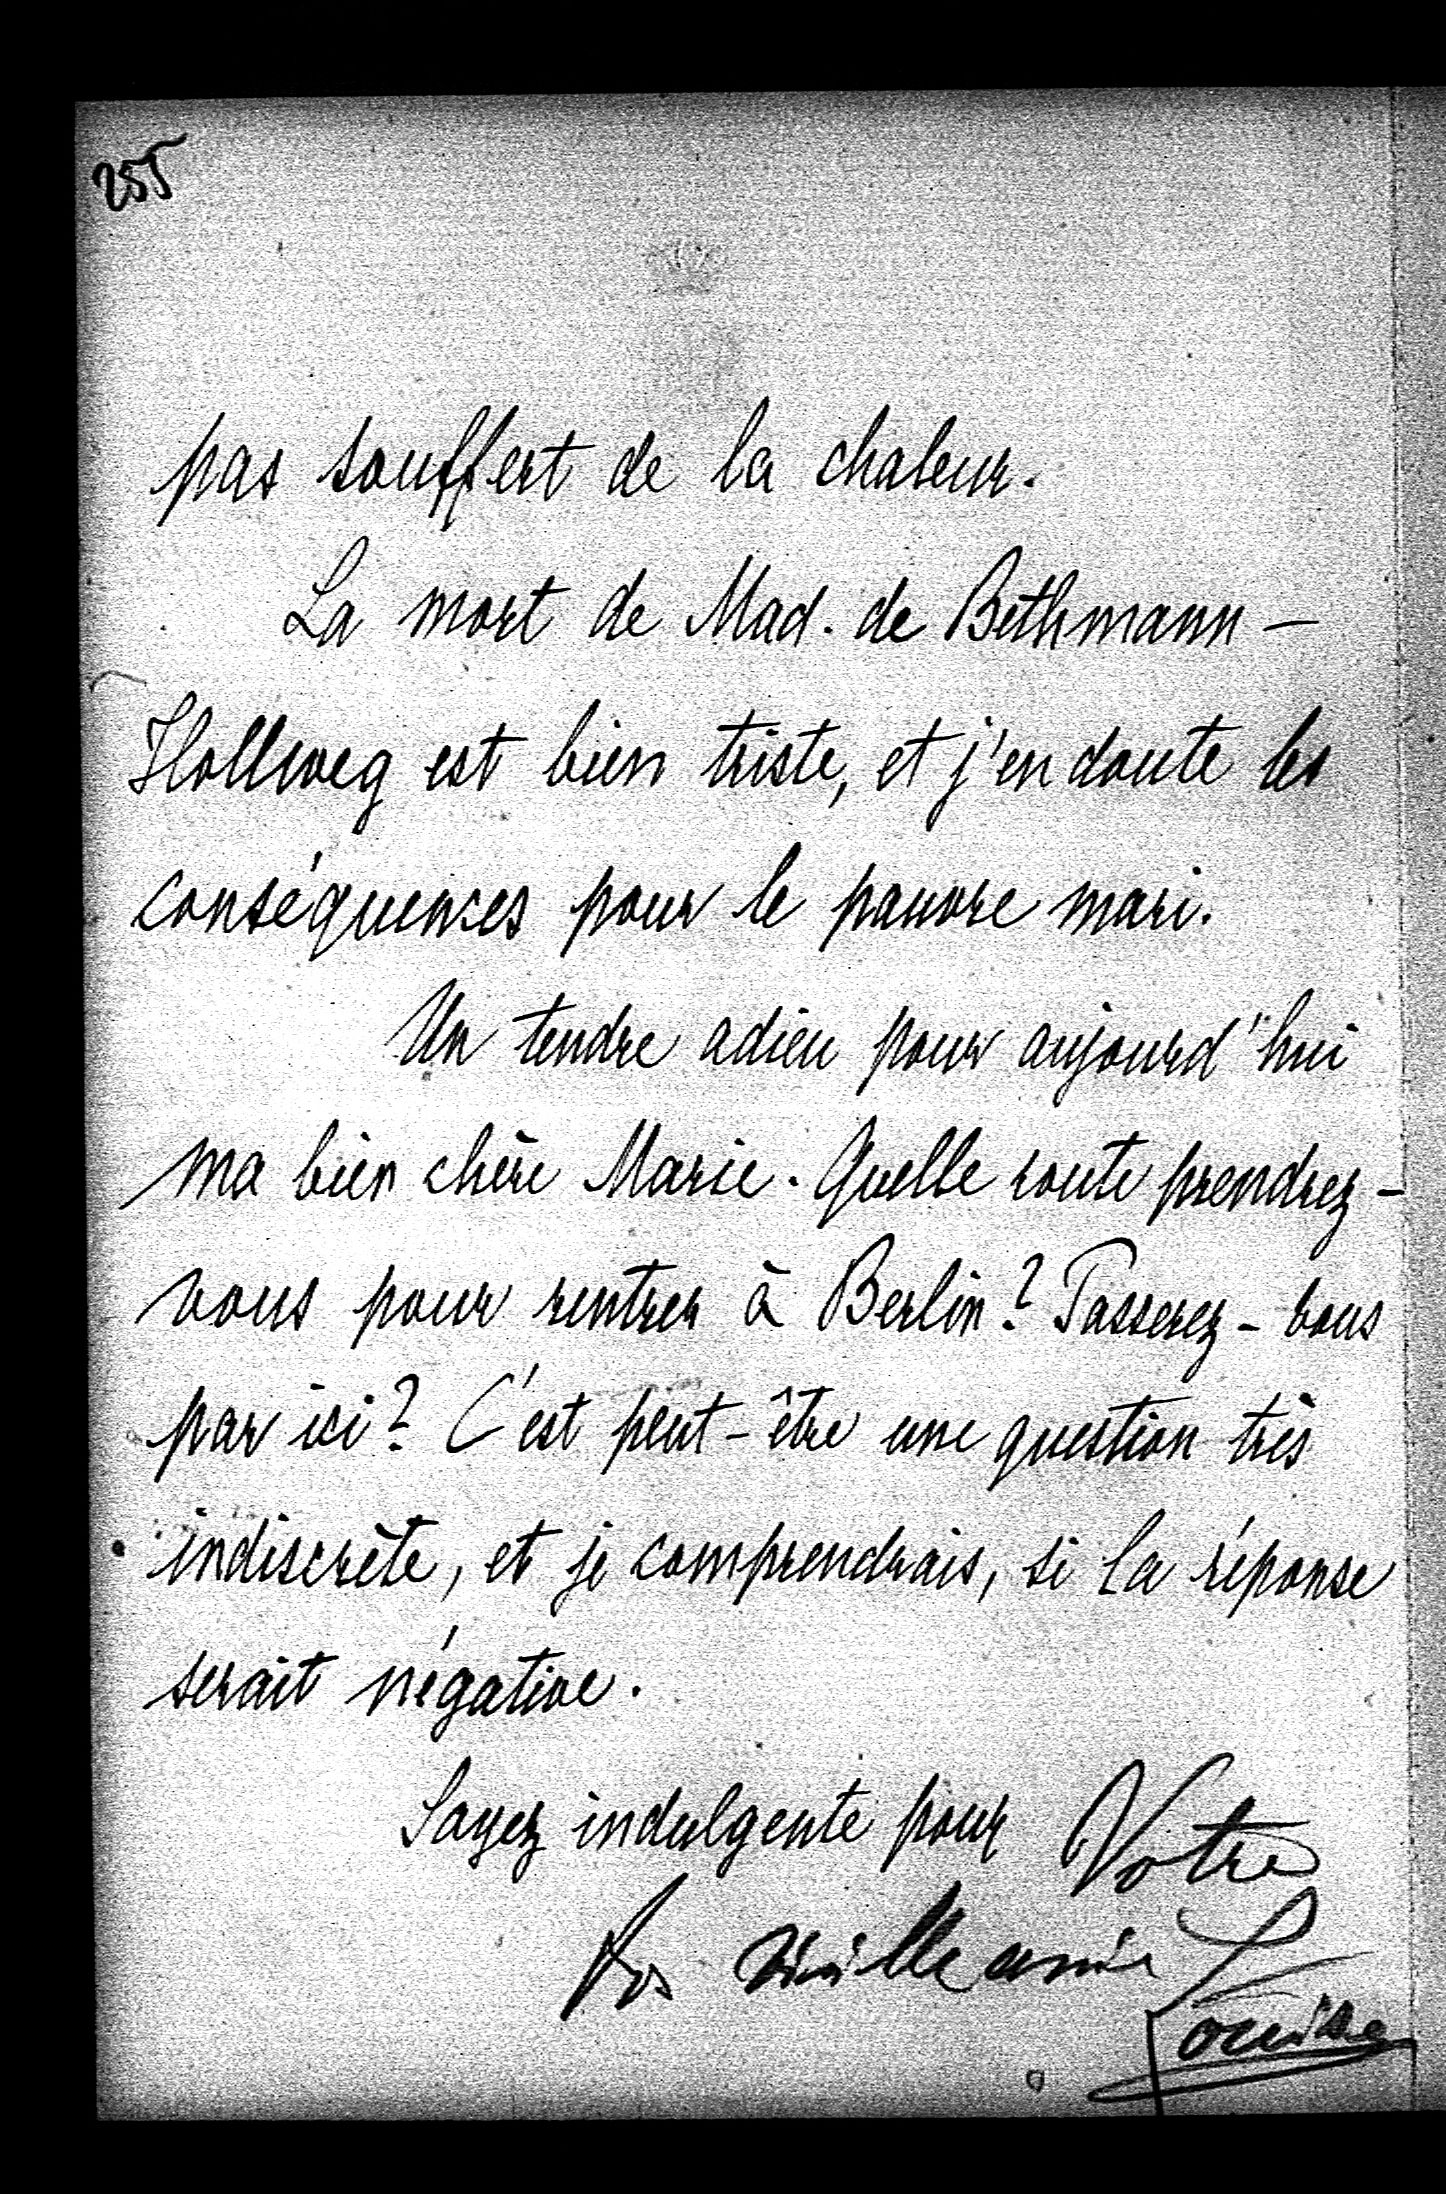 255
pas souffert de la chaleur.
La mort de Mad. de Bethmann-
Hollweg est bien triste, et j'en doute les
conséquences pour le pauvre mari.
Un tendre adieu pour aujourd'hui
ma bien chère Marie. Quelle route prendrez-
vous pour rentrer à Berlin? Passerez-vous
par ici? C'est peut-être une question très
indiscrète, et je comprendrais, si la réponse
serait négative.
Soyez indulgente pour Votre
vieille amie
Louise